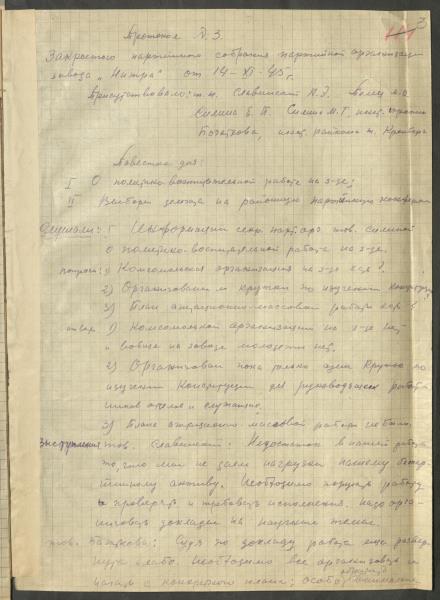 3
Протокол № 3.
Закрытого партийного собрания партийной организации
завода "Нитра" от 14-XI-45г.
Присутствовало: т.т. Славинский
Силина Е. П. Силин М. Г.
инст. райкома т.
Повестка дня:
I О политико-воспитательной работе на з-де;
II Выборы делегата на районную партийную конференц
Слушали: I Информации секр. парторг тов. Силиной
о политико-воспитательной работе на з-де.
вопросы: 1) Комсомольская организация на з-де есть?
2) Организован ли кружки по изучению Конституции
3) План агитационно-массовой работы
ответ 1) Комсомольской организации на з-де нет
и вообще на заводе молодежи нет.
2) Организован пока только один кружок по
изучению Конституции для руководящих работ
ников отдела и служащих.
3) Плана агитационно массовой работы не было.
Выступления тов. Славинский. Недостаток в нашей работе
то, что мы не даем нагрузки нашему беспар
тийному активу. Необходимо поручать работу
и проверять и требовать исполнения. надо орга-
низовать доклады на научные темы.
тов. Судя по докладу работа еще развер
нута слабо. Необходимо все организовать и
начать с конкретного плана; особо внимание